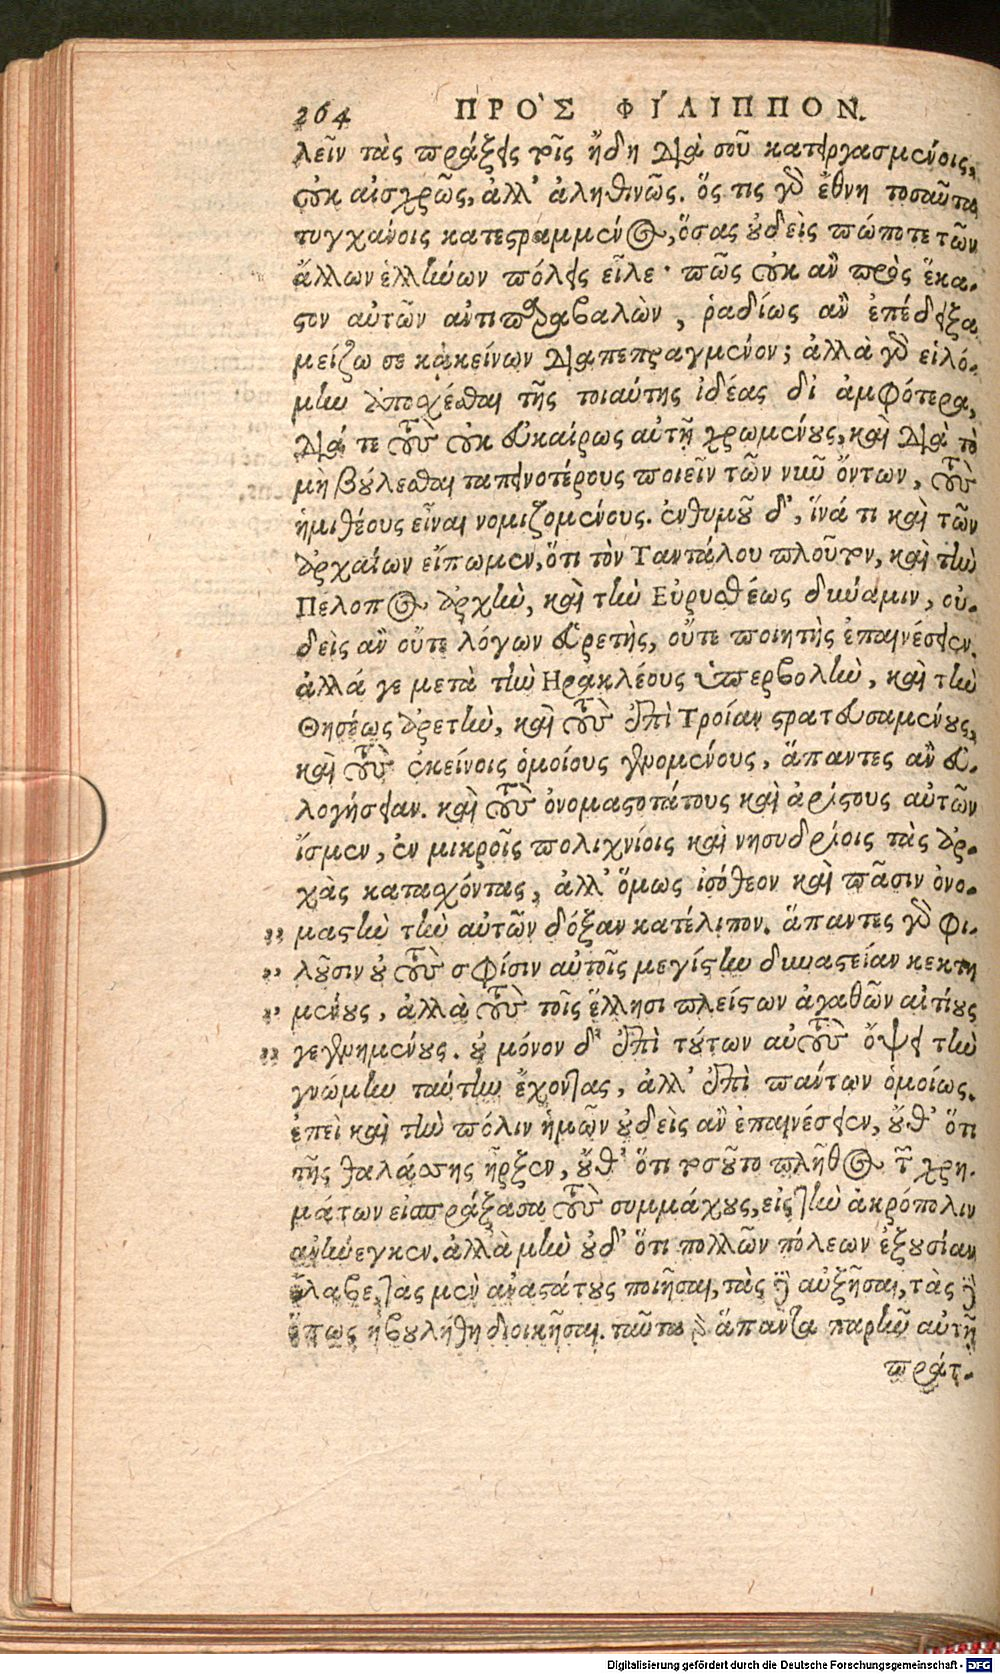 264 ΠΡΟ`Σ ΦΙ´ΛΙΠΠΟΝ.
λεῖν τὰς πράξεις τοῖς ἤδη διὰ σοῦ κατειργασμένοις,
οὐκ αἰσχρῶς, ἀλλ' ἀληθινῶς. ὅς τις γὰρ ἔθνη τοσαῦτα
τυγχάνοις κατεστραμμένος, ὅσας οὐδεὶς πώποτε τῶν
ἄλλων ἑλλήνων πόλεις εἷλε· πῶς οὐκ ἂν πρὸς ἕκα-
στον αὐτῶν ἀντιπαραβαλὼν, ῥαδίως ἂν ἐπέδειξα
μείζω σε κἀκείνων διαπεπραγμένον; ἀλλὰ γὰρ εἱλό-
μην ἀποσχέσθαι τῆς τοιαύτης ἰδέας δι' ἀμφότερα,
διά τε τοὺς οὐκ εὐκαίρως αὐτῇ χρωμένους, καὶ διὰ τὸ
μὴ βούλεσθαι ταπεινοτέρους ποιεῖν τῶν νῦν ὄντων, τοὺς
ἡμιθέους εἶναι νομιζομένους. ἐνθυμοῦ δ', ἵνά τι καὶ τῶν
ἀρχαίων εἴπωμεν, ὅτι τὸν Ταντάλου πλοῦτον, καὶ τὴν
Πέλοπος ἀρχὴν, καὶ τὴν Εὐρυσθέως δύναμιν, οὐ-
δεὶς ἂν οὔτε λόγων εὑρετὴς, οὔτε ποιητὴς ἐπαινέσειεν.
ἀλλά γε μετὰ τὴν Ηρακλέους ὑπερβολὴν, καὶ τὴν
Θησέως ἀρετὴν, καὶ τοὺς ἐπὶ Τροίαν στρατευσαμένους,
καὶ τοὺς ἐκείνοις ὁμοίους γενομένους, ἅπαντες ἂν εὐ-
λογήσειαν. καὶ τοὺς ὀνομαστοτάτους καὶ ἀρίστους αὐτῶν
ἴσμεν, ἐν μικροῖς πολιχνίοις καὶ νησυδρίοις τὰς ἀρ-
χὰς κατασχόντας, ἀλλ' ὅμως ἰσόθεον καὶ πᾶσιν ὀνο-
,, μαστὴν τὴν αὑτῶν δόξαν κατέλιπον. ἅπαντες γὰρ φι-
,, λοῦσιν οὐ τοὺς σφίσιν αὐτοῖς μεγίστην δυναστείαν κεκτη
,, μένους, ἀλλὰ τοὺς τοῖς ἕλλησι πλείστων ἀγαθῶν αἰτίους
,, γεγενημένους. οὐ μόνον δ' ἐπὶ τούτων αὐτοὺς ὄψει τὴν
γνώμην ταύτην ἔχοντας, ἀλλ' ἐπὶ πάντων ὁμοίως.
ἐπεὶ καὶ τὴν πόλιν ἡμῶν οὐδεὶς ἂν ἐπαινέσειεν, οὔθ' ὅτι
τῆς θαλάσσης ἦρξεν, οὔθ' ὅτι τοσοῦτο πλῆθος τῶν χρη-
μάτων εἰσπράξασα τοὺς συμμάχους, εἰς τὴν ἀκρόπολιν
ἀνήνεγκεν. ἀλλὰ μὴν οὐδ' ὅτι πολλῶν πόλεων ἐξουσίαν
ἔλαβε, τὰς μὲν ἀναστάτους ποιῆσαι, τὰς δὲ αὐξῆσαι, τὰς δὲ
ὅπως ἠβουλήθη διοικῆσαι. ταῦτα γὰρ ἅπαντα παρῆν αὐτῇ
πράτ-
Digitalisierung gefördert durch die Deutsche Forschungsgemeinschaft - DFG